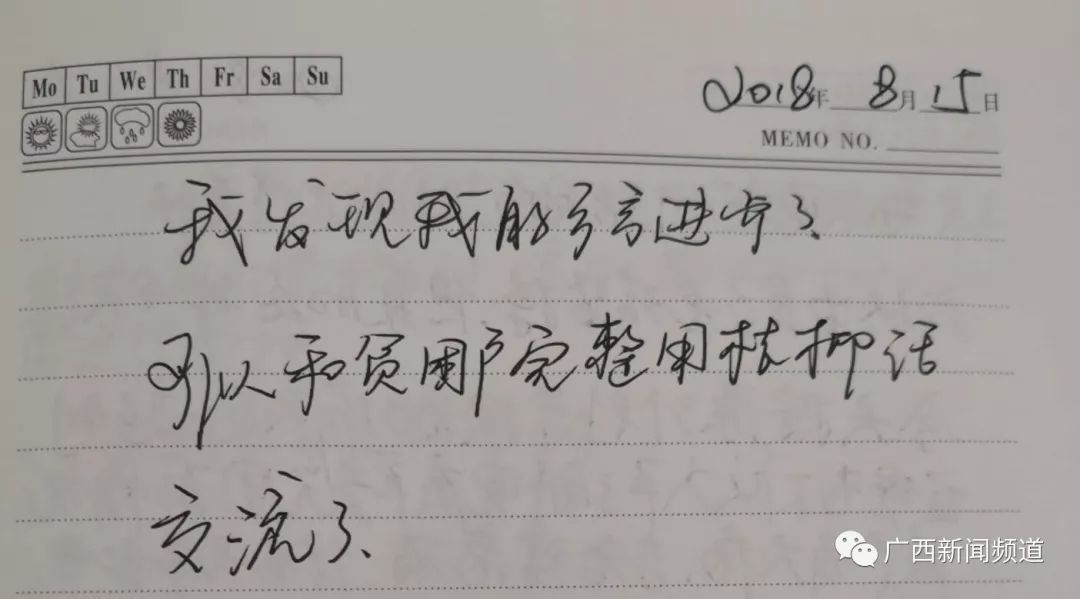 Mo Tu We Th Fr Sa Su
2018年 8月 15日
MEMO NO.
我发现我的语言进步了、
可以和贫困户完整用桂柳话
交流了、
广西新闻频道